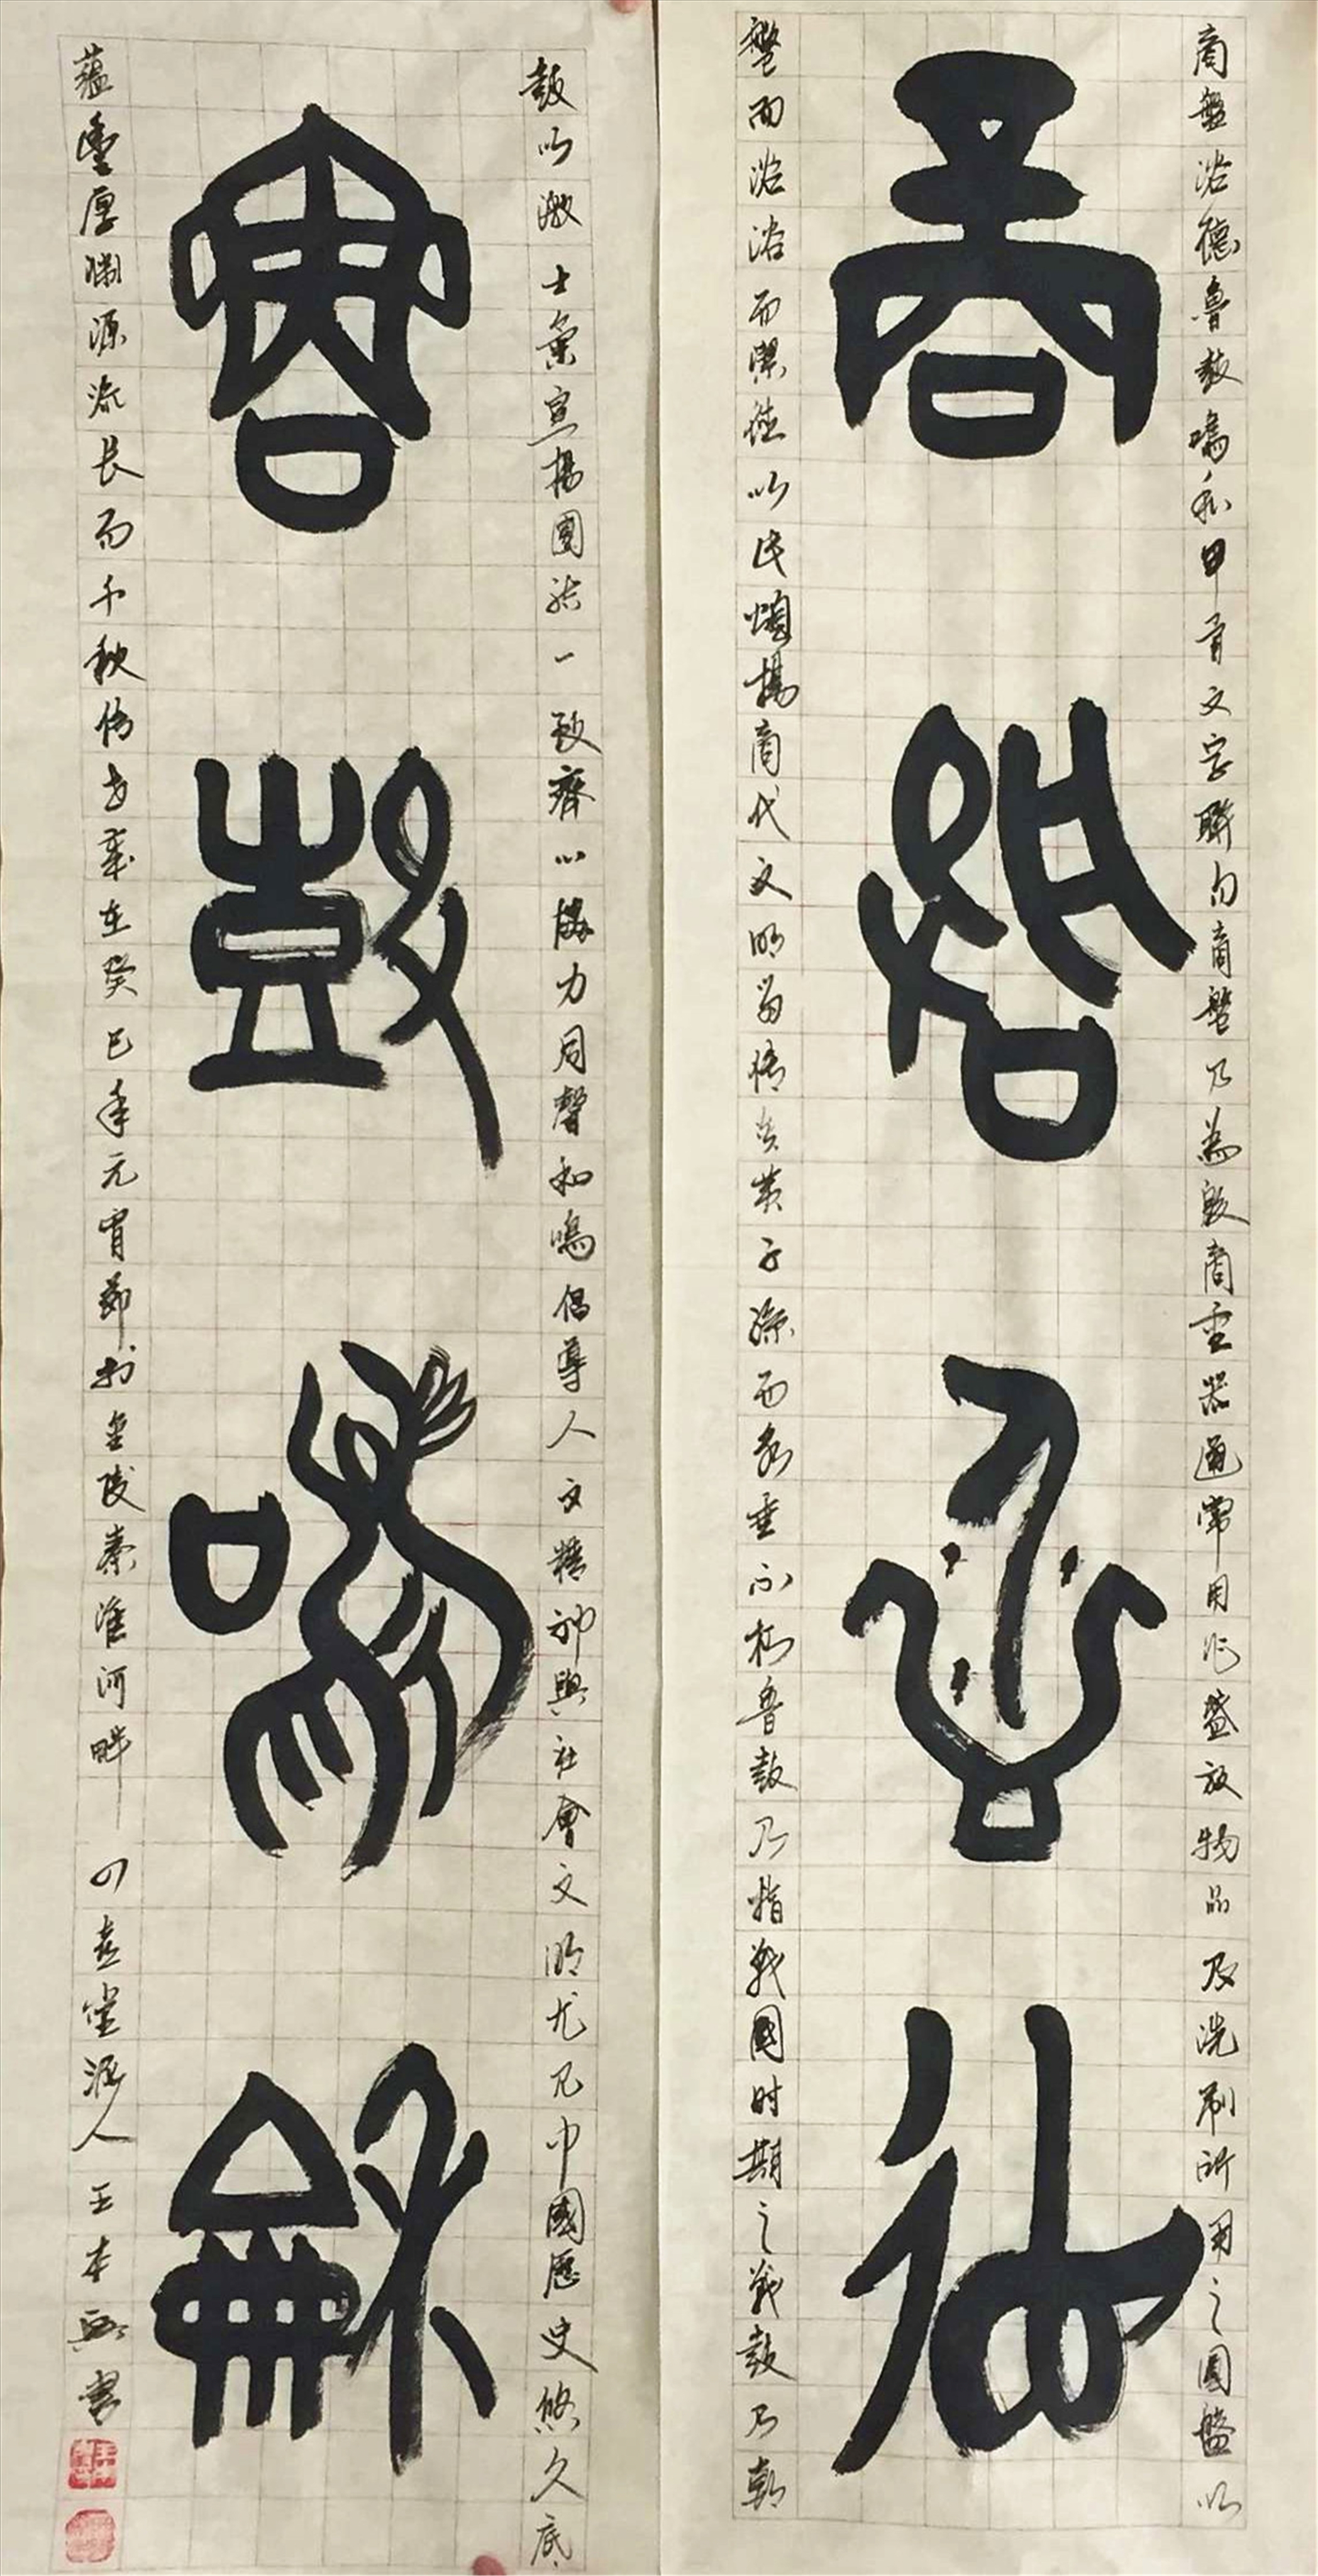 商盤浴德
魯鼓鳴和
商盤浴德魯鼓鳴和甲骨文字聯句商盤乃為殷商重器通常用作盛放物品及洗刷所用之圓盤以
盤而浴浴而潔德以民頌揚商代文明 子孫而永垂不朽魯鼓乃指戰國时期之戰鼓乃朝
鼓以激士氣宣揚團結一致齊心協力同聲和鳴倡導人文精神與社會文明尤見中國歷史悠久底
蘊豐厚淵源流長而千秋傳 在癸巳年元宵節於金陵秦淮河畔 堂 人王本興書